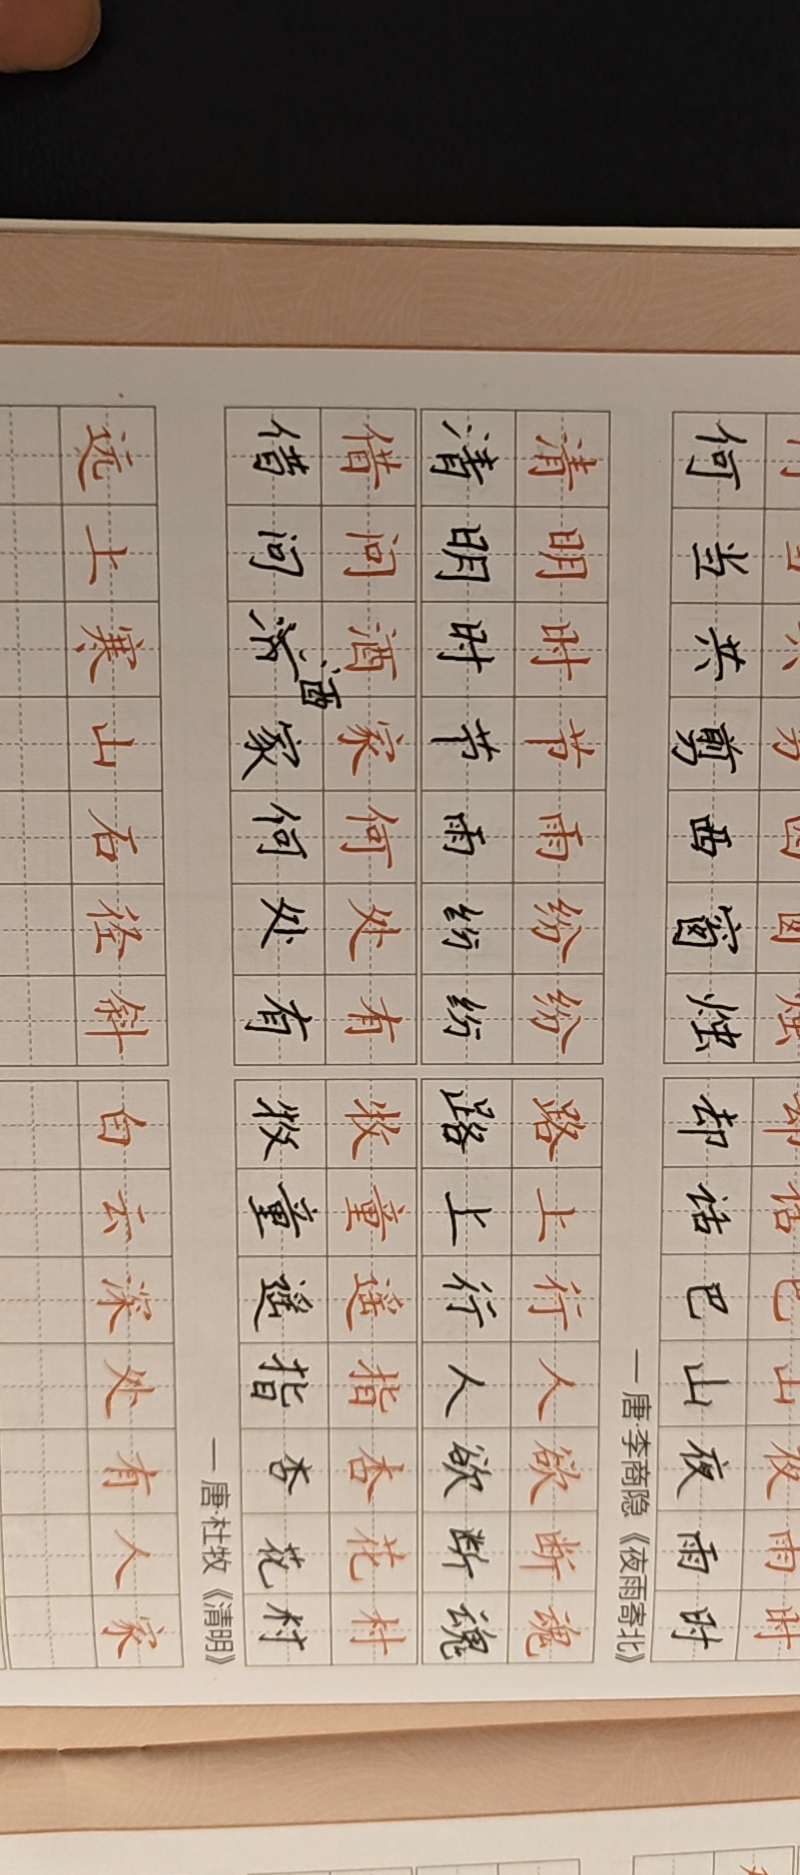 却话巴山夜雨时
何当共剪西窗烛 却话巴山夜雨时
— 唐·李商隐《夜雨寄北》
清明时节雨纷纷 路上行人欲断魂
清明时节雨纷纷 路上行人欲断魂
借问酒家何处有 牧童遥指杏花村
借问酒家何处有 牧童遥指杏花村
— 唐·杜牧《清明》
远上寒山石径斜 白云深处有人家